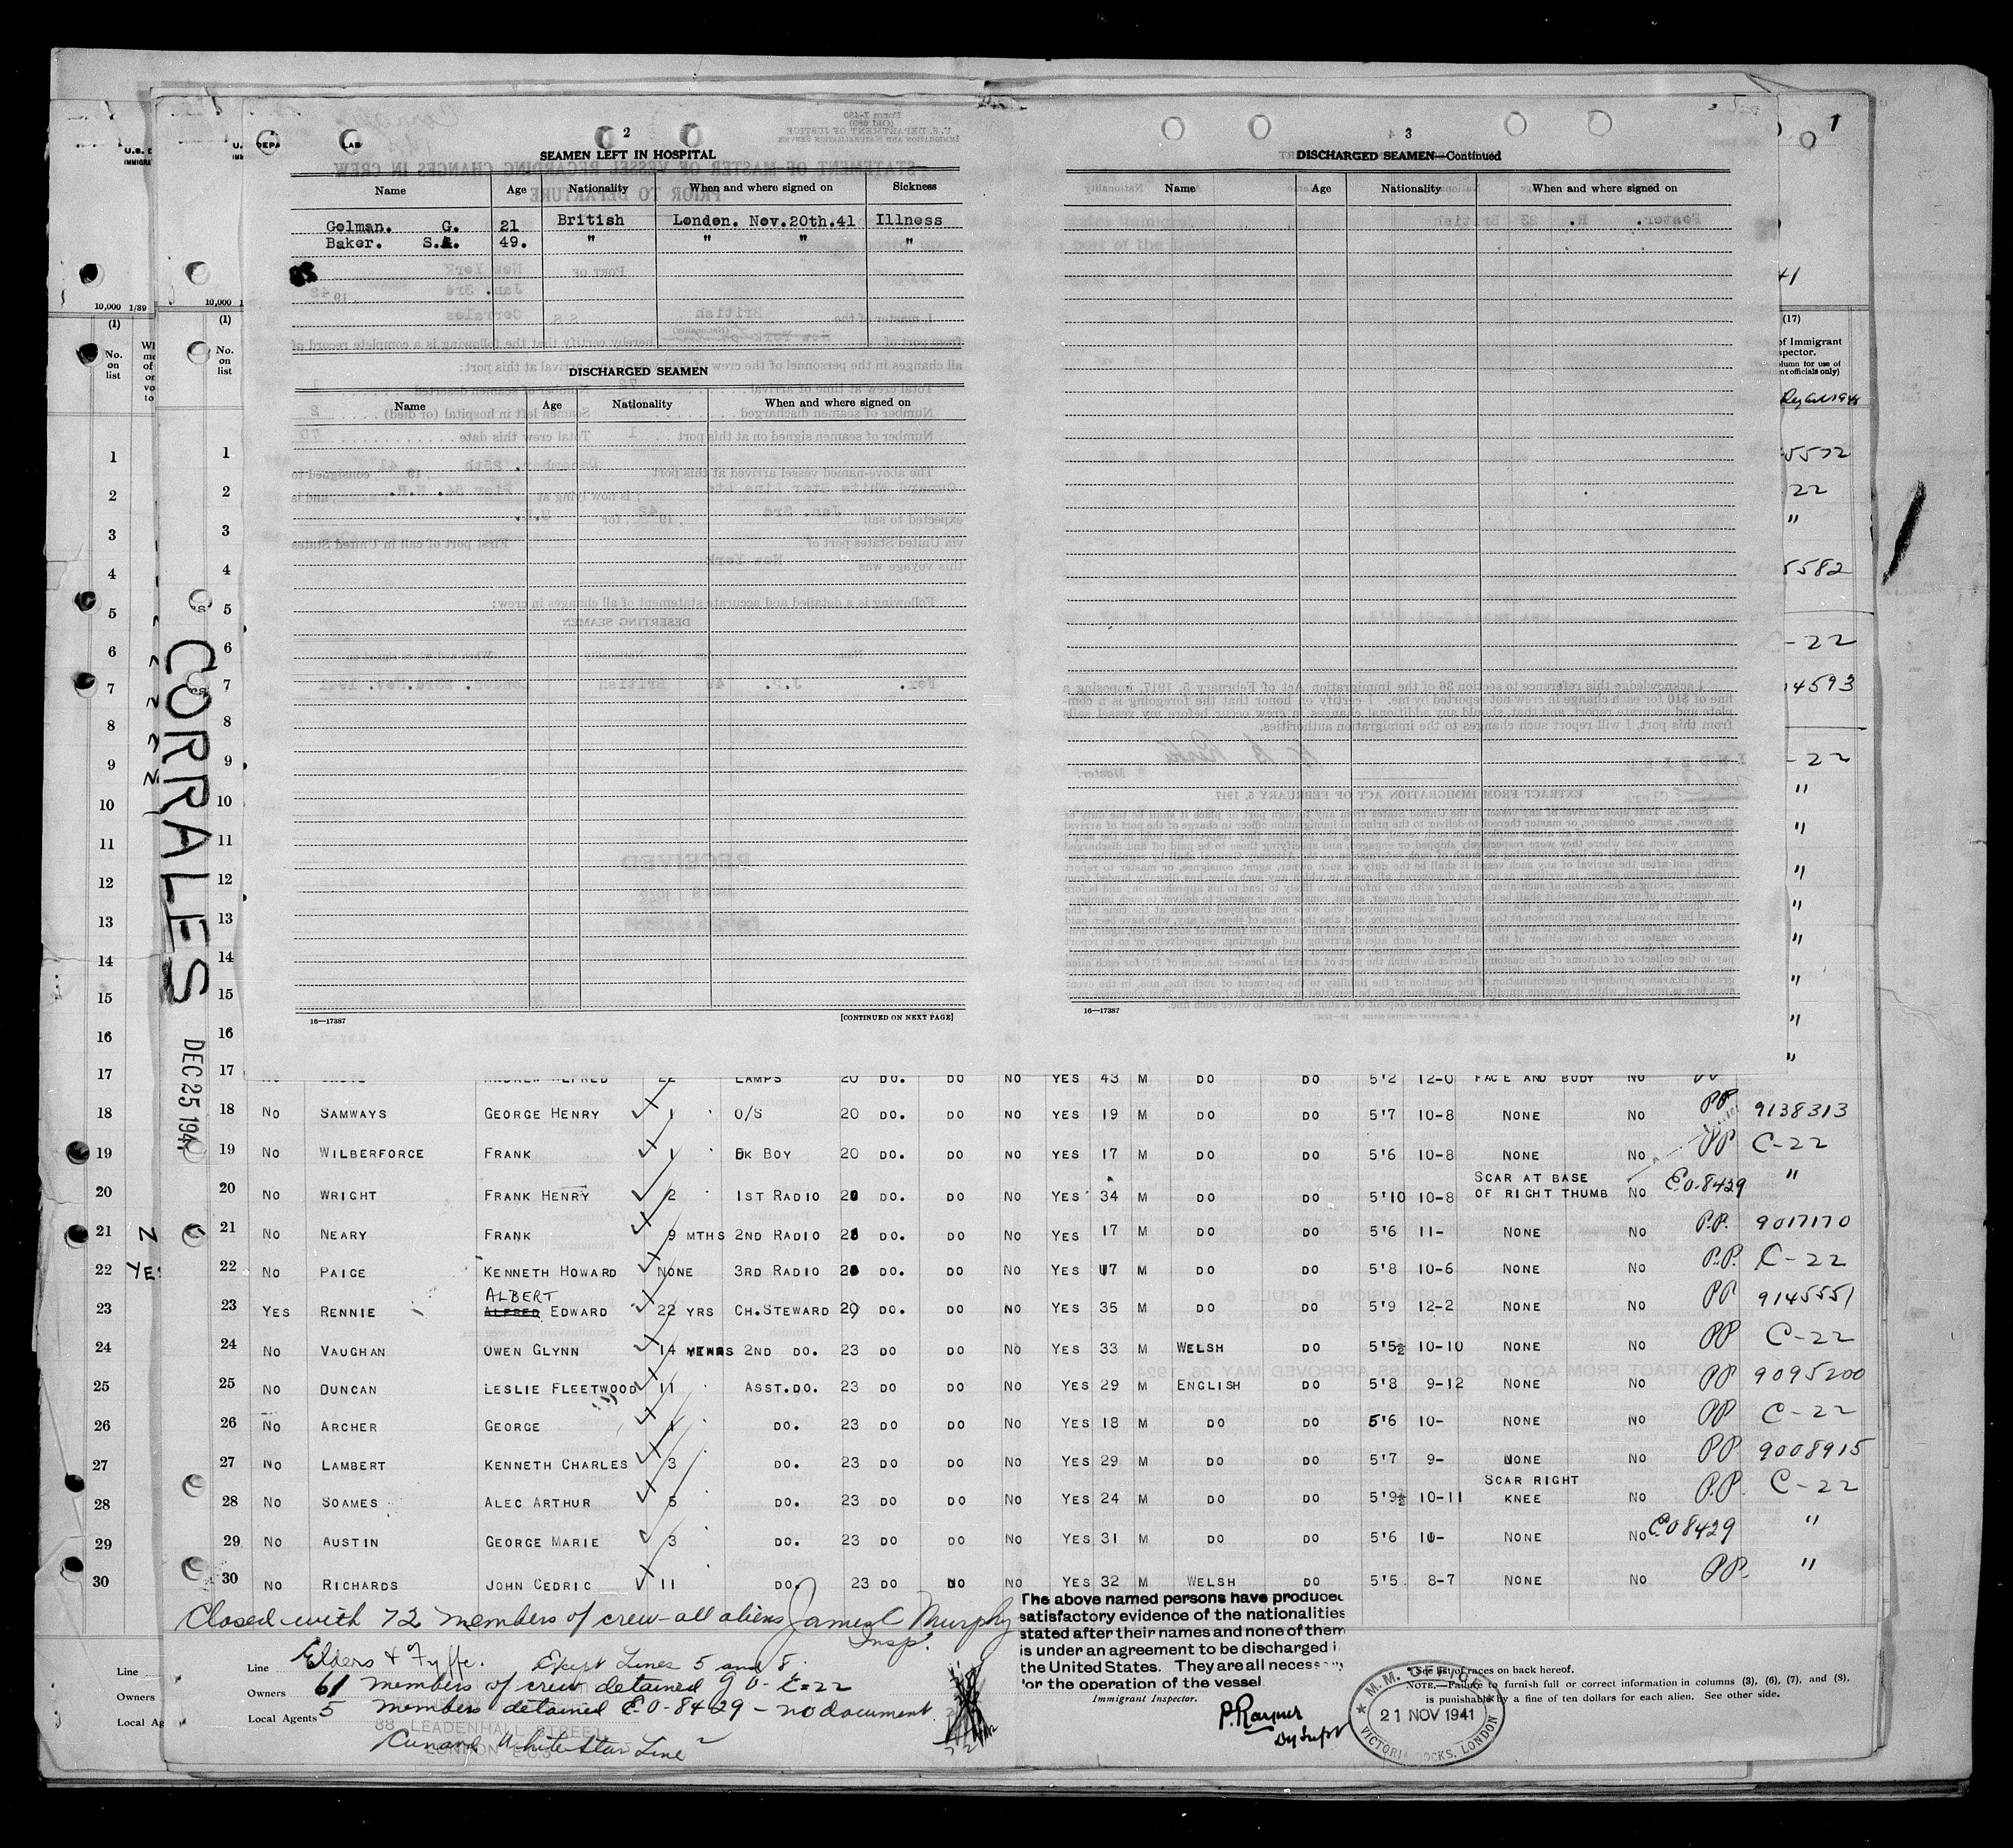 2
SEAMEN LEFT IN HOSPITAL
Name Age Nationality When and where signed on Sickness
Golman. G. 21 British London. Nov.20th.41 Illness
Baker. S.A. 49. " " " "
DISCHARGED SEAMEN
Name Age Nationality When and where signed on
16—17387 [CONTINUED ON NEXT PAGE]
3
DISCHARGED SEAMEN—Continued
Name Age Nationality When and where signed on
16—17387
10,000 1/39
10,000 1
(1)
(1)
No. on list
No. on list
(17)
of Immigrant
spector.
olumn for use of
nt officials only)
5582
-22
14593
-22
CORRALES
DEC 25 194
17 17 ANDREW ALFRED 22 LAMPS 20 DO. DO NO YES 43 M DO DO 5'2 12-0 FACE AND BODY NO PP
18 18 NO SAMWAYS GEORGE HENRY 1 O/S 20 DO. DO NO YES 19 M DO DO 5'7 10-8 NONE NO PP 9138313
19 19 NO WILBERFORCE FRANK 1 DK BOY 20 DO. DO NO YES 17 M DO DO 5'6 10-8 NONE NO PP C-22
20 20 NO WRIGHT FRANK HENRY 2 1ST RADIO 20 DO. DO NO YES 34 M DO DO 5'10 10-8 SCAR AT BASE OF RIGHT THUMB NO E.O.8429 "
21 21 NO NEARY FRANK 9 MTHS 2ND RADIO 20 DO. DO NO YES 17 M DO DO 5'6 11- NONE NO P.P. 9017170
22 YES 22 NO PAIGE KENNETH HOWARD NONE 3RD RADIO 20 DO. DO NO YES 17 M DO DO 5'8 10-6 NONE NO P.P. C-22
23 23 YES RENNIE ALFRED ALBERT EDWARD 22 YRS CH.STEWARD 20 DO. DO NO YES 35 M DO DO 5'9 12-2 NONE NO PP 9145551
24 24 NO VAUGHAN OWEN GLYNN 14 YEARS 2ND DO. 23 DO DO NO YES 33 M WELSH DO 5'5½ 10-10 NONE NO PP C-22
25 25 NO DUNCAN LESLIE FLEETWOOD 11 ASST.DO. 23 DO DO NO YES 29 M ENGLISH DO 5'8 9-12 NONE NO PP 9095200
26 26 NO ARCHER GEORGE 1 DO. 23 DO DO NO YES 18 M DO DO 5'6 10- NONE NO PP C-22
27 27 NO LAMBERT KENNETH CHARLES 3 DO. 23 DO DO NO YES 29 M DO DO 5'7 9- NONE NO PP 9008915
28 28 NO SOAMES ALEC ARTHUR 5 DO. 23 DO DO NO YES 24 M DO DO 5'9½ 10-11 SCAR RIGHT KNEE NO P.P. C-22
29 29 NO AUSTIN GEORGE MARIE 3 DO. 23 DO DO NO YES 31 M DO DO 5'6 10- NONE NO E08429 "
30 30 NO RICHARDS JOHN CEDRIC 11 DO. 23 DO NO NO YES 32 M WELSH DO 5'5 8-7 NONE NO PP. "
Closed with 72 members of crew all aliens James C Murphy
Insp.
Line Elders & Fyffe. Except Lines 5 and 8.
Owners 61 members of crew detained 90-C-22
Local Agents 5 members detained E.O-8429 - no document
88 LEADENHALL STREET
LONDON E.C.3
Cunard White Star Line
Line
Owners
Local Ag
The above named persons have produced
satisfactory evidence of the nationalities
stated after their names and none of them
is under an agreement to be discharged i
the United States. They are all necess
for the operation of the vessel
Immigrant Inspector.
P. Rayner
Dy Supt
M.M. OFFICE
21 NOV 1941
VICTORIA DOCKS, LONDON
See list of races on back hereof.
NOTE.—Failure to furnish full or correct information in columns (3), (6), (7), and (8),
is punishable by a fine of ten dollars for each alien. See other side.